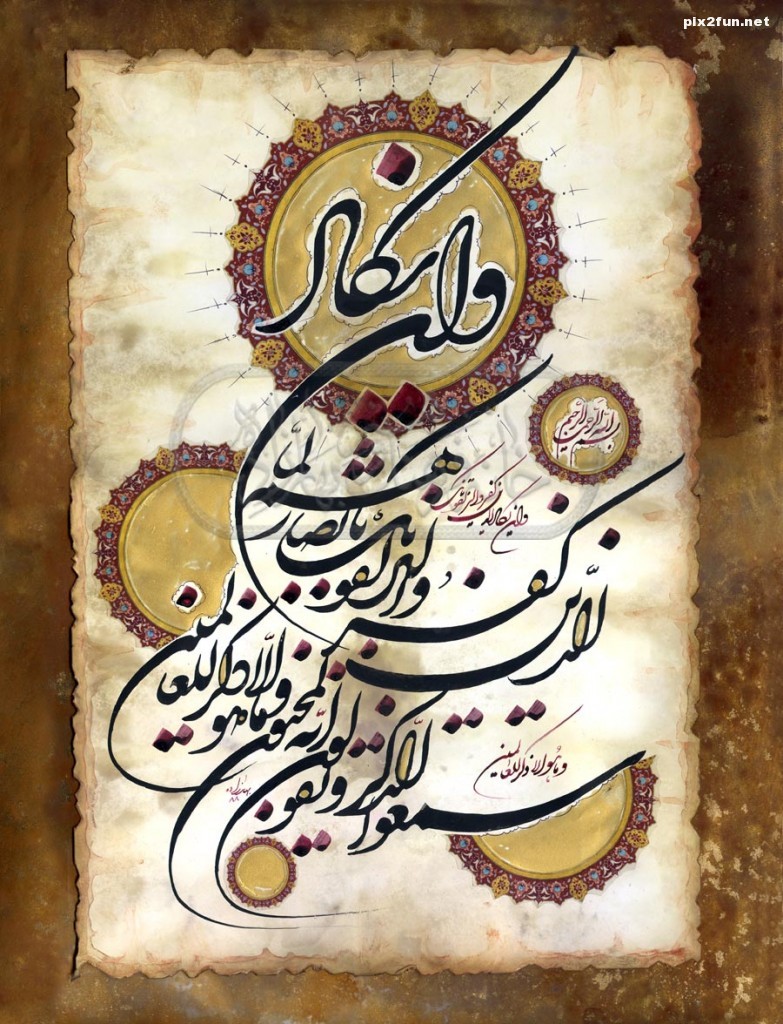 pix2fun.net
وان یکاد
بسم الله الرحمن الرحیم
وان یکاد الذین کفروا لیزلقونک
الذین کفروا
لیزلقونک بابصارهم لما
سمعوا الذکر و یقولون انه لمجنون
و ما هو الا ذکر للعالمین
و ما هو الا ذکر للعالمین